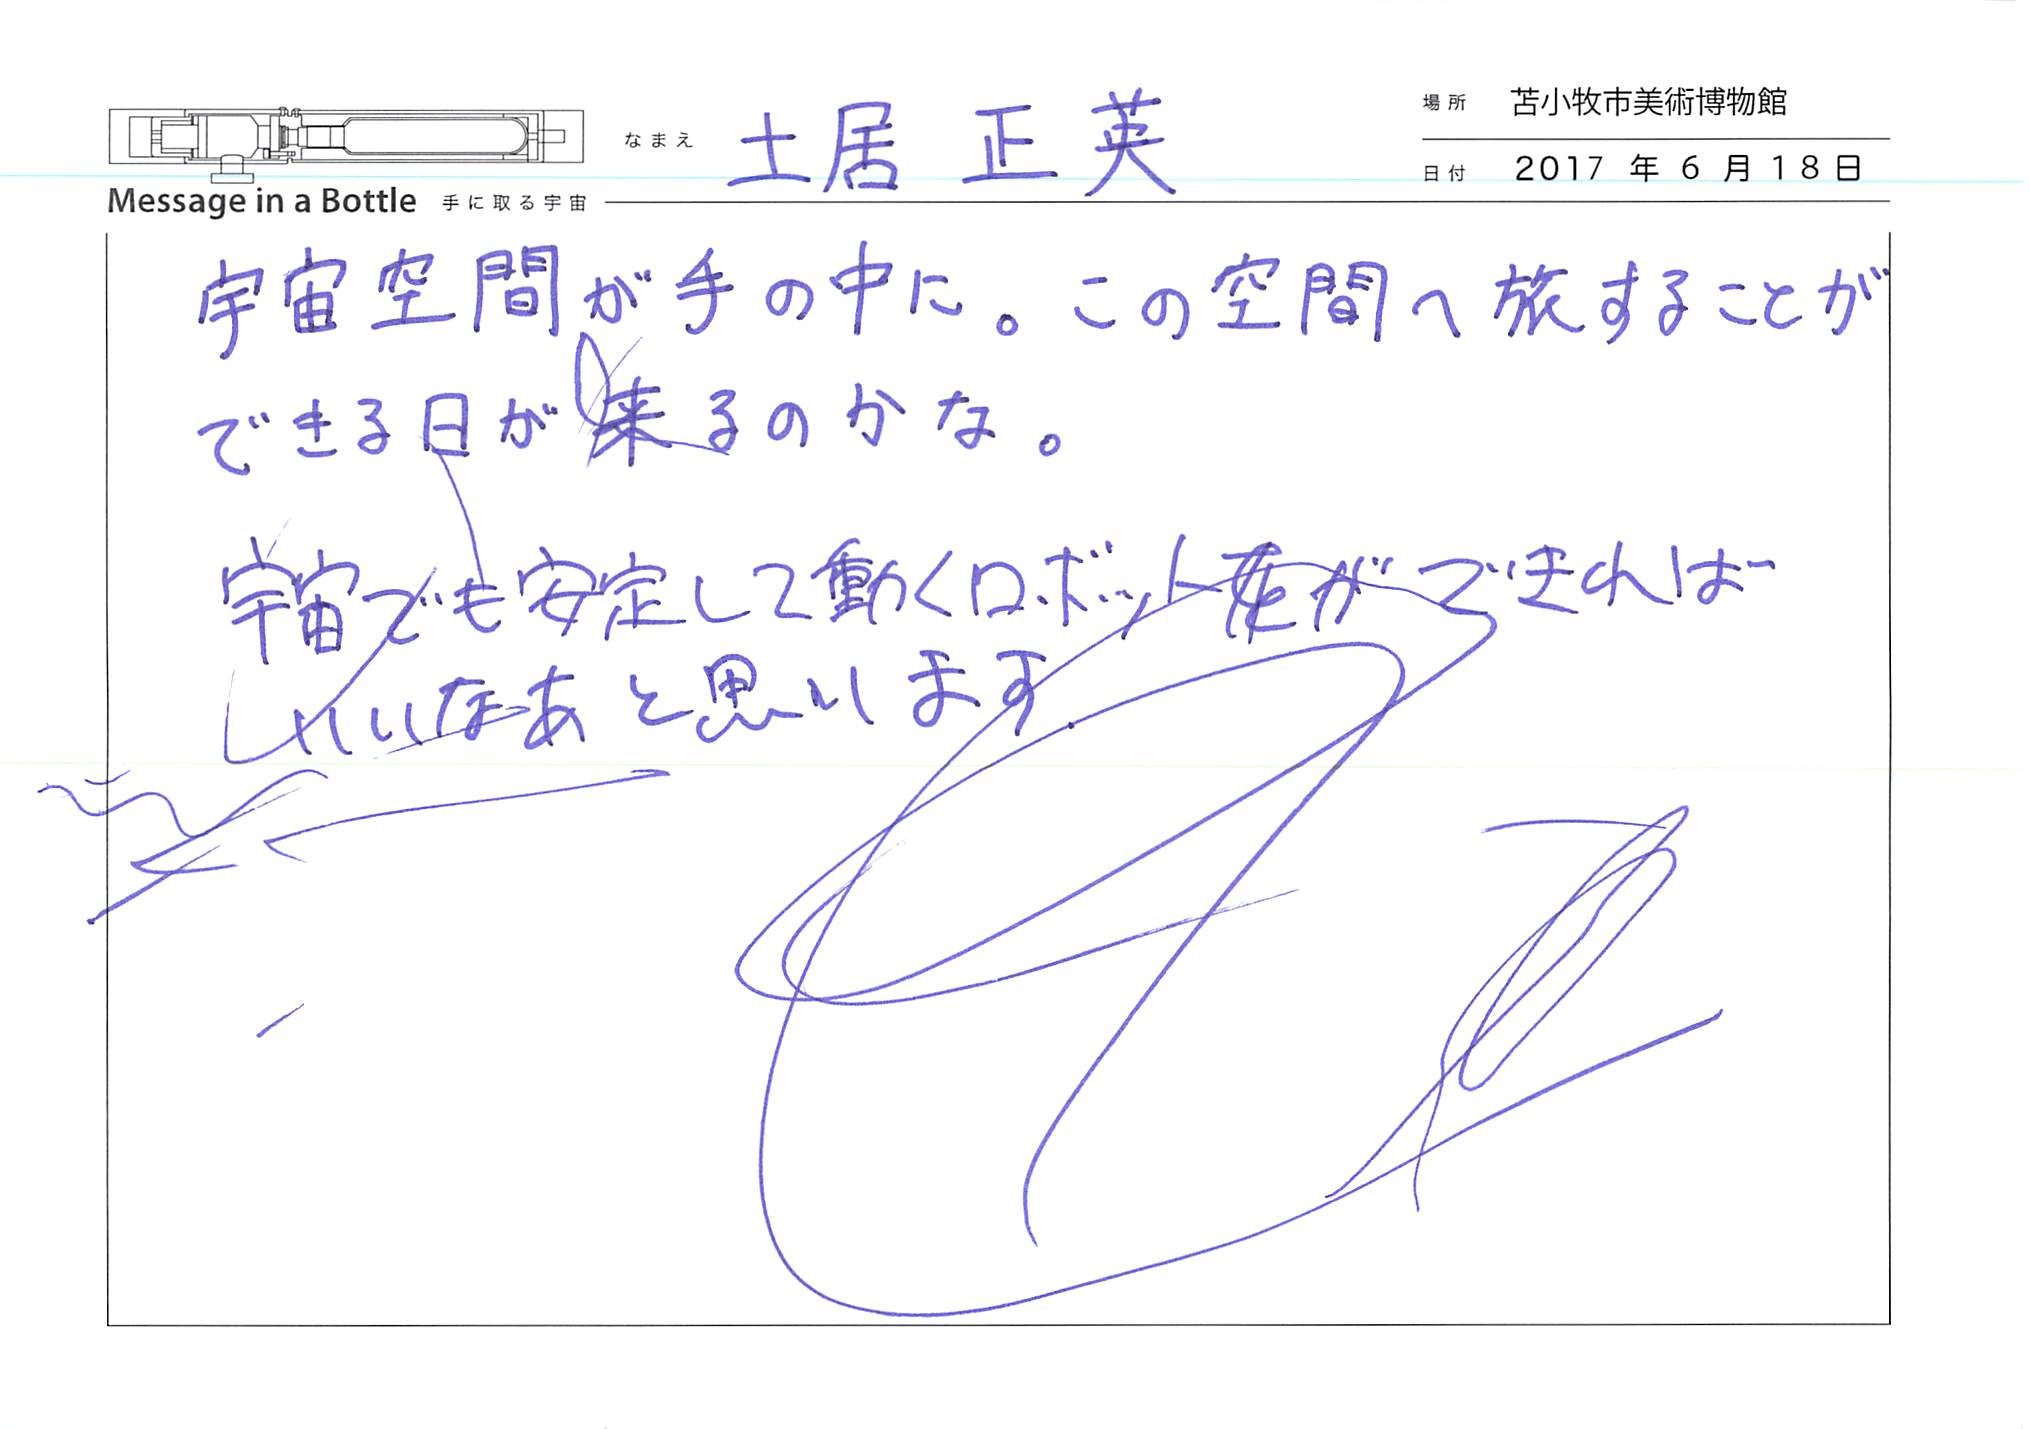 なまえ 土居 正英
場所 苫小牧市美術博物館
日付 2017 年 6 月 18 日
Message in a Bottle 手に取る宇宙
宇宙空間が手の中に。この空間へ旅することが
できる日が来るのかな。
宇宙でも安定して動くロボットがができれば
いいなあと思います